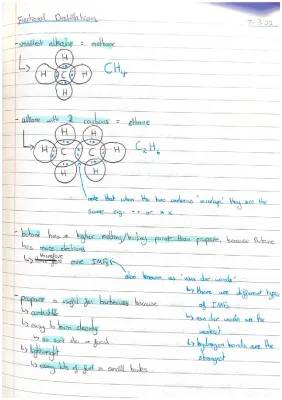 Fractional Distillations
7.3.22
- smallest alkane = methane
H
H C H
H
CH4
- alkane with 2 carbons = ethane
H H
H C C H
H H
C2H6
note that when the two undergo 'overlap' they are the
same e.g. •• or x x
- butane has a higher melting/boiling point than propane, because butane
has more electrons
↳ therefore more IMFs
also known as 'van der waals'
↳ there are different types
of IMFs
↳ van der waals are the
weakest
↳ hydrogen bonds are the
strongest
- propane is useful for barbecues because
↳ combustible
↳ easy to burn cleanly
↳ so soot on food
↳ lightweight
↳ carry lots of fuel in small bottles